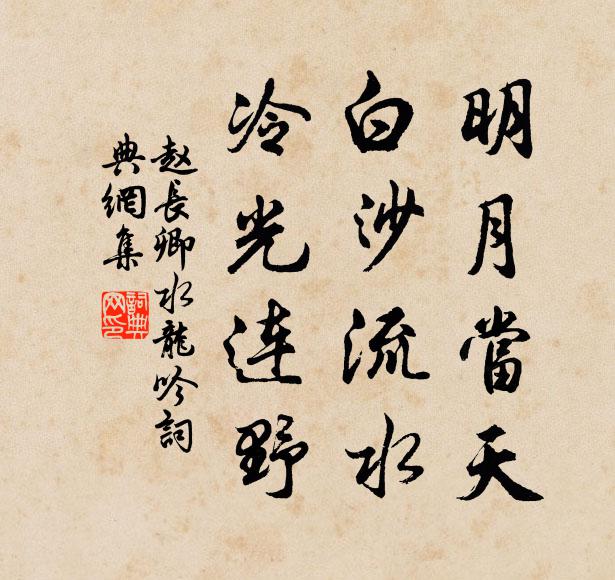 明月當天
白沙流水
冷光連野
赵長卿水龍吟詞
典網集
詞典
网印